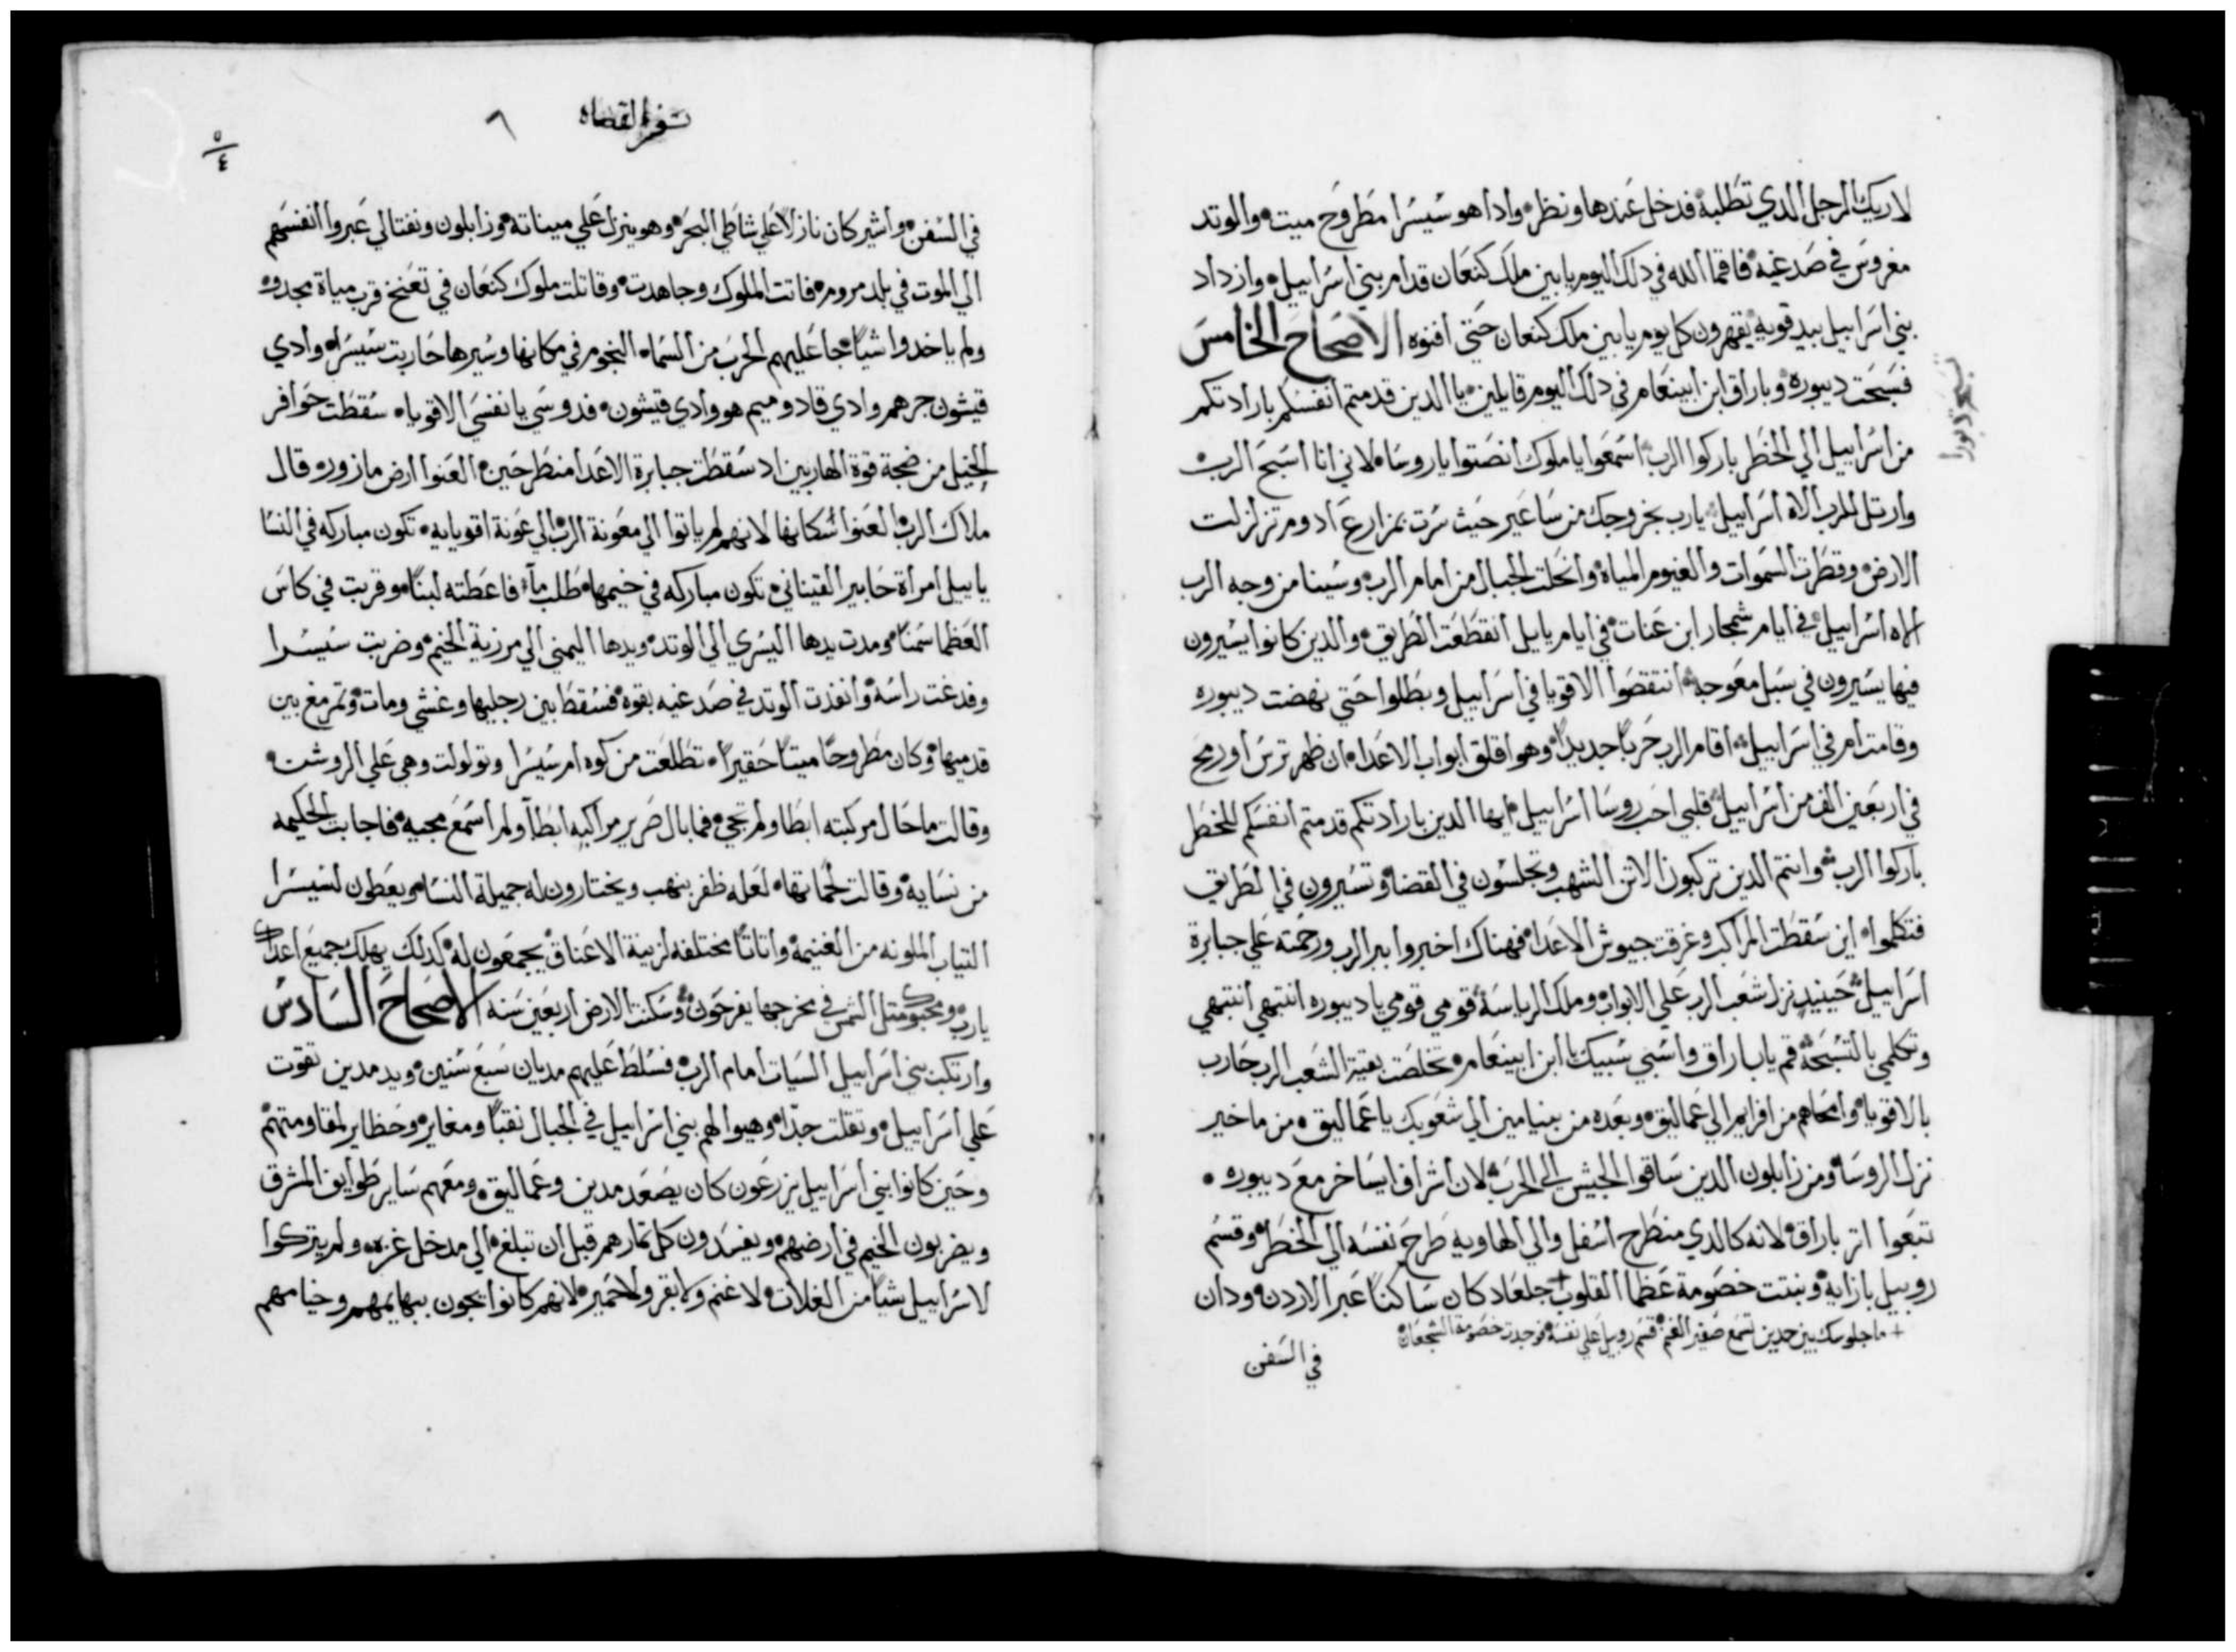 لاريك الرجل الدي تطلبة فدخل عندها ونظر وادا هو سيسرا مطروح ميت والوتد
مغروس في صدغيه فاقما الله في دلك اليوم يابين ملك كنعان قدام بني اسراييل وازداد
بني اسراييل بيد قويه يقهرون كل يوم يابين ملك كنعان حتي افنوه الاصحاح الخامس
فسبحت ديبوره وباراق ابن ابينعام في دلك اليوم قايلين يا الدين قدمتم انفسكم بارادتكم
من اسراييل الي الخطر باركوا الرب اسمعوا يا ملوك انصتوا يا روسا لاني انا اسبح الرب
وارتل للرب الاه اسراييل يارب بخروجك من ساغير حيث سرت بمزارع ادوم تزلزلت
الارض وقطرت السموات والغيوم المياه وانحلت الجبال من امام الرب وسينا من وجه الرب
الاه اسراييل في ايام شمجار ابن عنات في ايام يابل انقطعت الطريق والدين كانوا يسيرون
فيها يسيرون في سبل معوجه انتقضوا الاقويا في اسراييل وبطلوا حتي نهضت ديبوره
وقامت ام في اسراييل اقام الرب حربا جديدا وهو اقلق ابواب الاعدا ان ظهر ترس او رمح
في اربعين الف من اسراييل قلبي احب روسا اسراييل ايها الدين بارادتكم قدمتم انفسكم للخطر
باركوا الرب وانتم الدين تركبون الاتن الشهب وتجلسون في القضا وتسيرون في الطريق
فتكلموا اين سقطت المراكب وغرقت جيوش الاعدا فهناك اخبروا ببر الرب ورحمته علي جبابرة
اسراييل حينيد نزل شعب الرب علي الابواب وملك الرياسة قومي قومي يا ديبوره انتبهي انتبهي
وتكلمي بالتسبحة قم يا باراق واسبي سبيك يا ابن ابينعام تخلصت بقية الشعب الرب حارب
بالاقويا وامحاهم من افرايم الي عماليق وبعده من بنيامين الي شعوبك يا عماليق من ماخير
نزل الروسا ومن زابلون الدين ساقوا الجيش الي الحرب لان اشراف ايساخر مع ديبوره
تبعوا اتر باراق لانه كالدي منطرح اسفل والي الهاويه طرح نفسه الي الخطر وقسم
روبيل بازايه ونبتت خصومة عظما القلوب + جلعاد كان ساكنا عبر الاردن ودان
+ ما جلوسك بين حدين لتسمع صفير الغنم قسم روبيل علي نفسة فوجدت خصومة الشجعان
في السفن
تسبحة دبورا
سفر القضاه
٦
٥
٤
في السفن واشير كان نازلا علي شاطي البحر وهو ينزل علي ميناته وزابلون ونفتالي عبروا انفسهم
الي الموت في بلد مروم فاتت الملوك وجاهدت وقاتلت ملوك كنعان في تعنخ قرب مياة مجدو
ولم ياخدوا شيا جا عليهم الحرب من السماء النجوم في مكانها وسيرها حاربت سيسرا وادي
قيشون جرهم وادي قادوميم هو وادي قيشون فدوسي يا نفسي الاقويا سقطت حوافر
الخيل من ضجة قوة الهاربين اد سقطت جبابرة الاعدا منطرحين العنوا ارض مازوره قال
ملاك الرب العنوا سكانها لانهم لم ياتوا الي معونة الرب الي عونة اقويايه تكون مباركه في النسا
ياييل امراة حابير القيناني تكون مباركه في خيمها طلب ماء فاعطته لبنا وقربت في كاس
العظما سمنا ومدت يدها اليسري الي الوتد ويدها اليمني الي مرزبة الخيم وضربت سيسرا
وفدغت راسة وانفدت الوتد في صدغيه بقوه فسقط بين رجليها وغشي ومات وتمرمغ بين
قدميها وكان مطروحا ميتا حقيرا تطلعت من كوه ام سيسرا وتولولت وهي علي الروشن
وقالت ما حال مركبته ابطا ولم تجي فما بال صرير مراكبه ابطا ولم اسمع مجيه فاجابت الحكيمه
من نسايه وقالت لحماتها لعله ظفر بنهب ويختارون له جميلة النسا ويعطون لسيسرا
التياب الملونه من الغنيمة واتاتا مختلفه لزينة الاعناق يجمعون له كدلك يهلك جميع اعداك
يارب ومحبوك متل الشمس في مخرجها يفرحون وسكنت الارض اربعين سنه الاصحاح السادس
وارتكبت بني اسراييل السيات امام الرب فسلط عليهم مديان سبع سنين ويد مدين تقوت
علي اسراييل وتقلت جدا وهيوا لهم بني اسراييل في الجبال نقبا ومغاير وحظاير لمقاومتهم
وحين كانوا بني اسراييل يزرعون كان يصعد مدين وعماليق ومعهم ساير طوايف المشرق
ويضربون الخيم في ارضهم ويفسدون كل تمارهم قبل ان تبلغ الي مدخل غزه ولم يتركوا
لاسراييل شيا من الغلات لا غنم ولا بقر ولا حمير لانهم كانوا يجون ببهايمهم وخيامهم